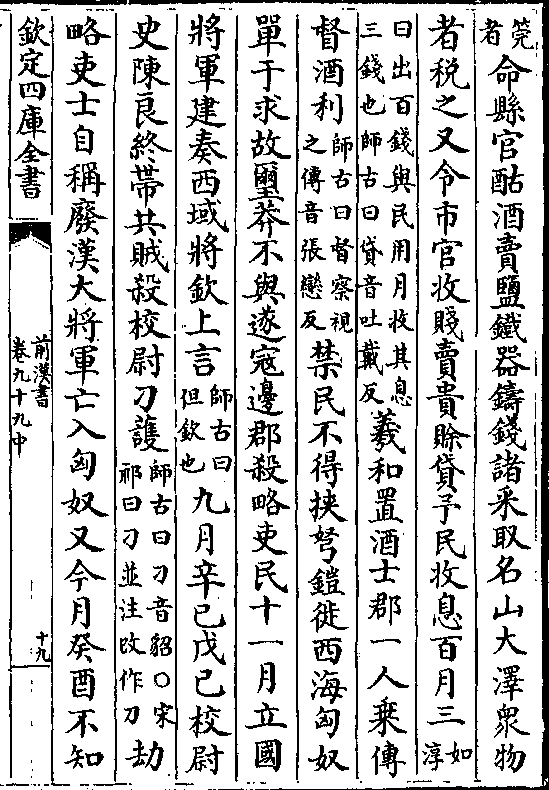 筦者命縣官酤酒賣鹽鐵器鑄錢諸采取名山大澤衆物
者税之又令市官收賤賣貴賖貸予民收息百月三如淳
曰出百錢與民用月收其息三錢也師古曰貸音吐戴反羲和置酒士郡一人乗傳
督酒利師古曰督察視之傳音張戀反禁民不得挾弩鎧徙西海匈奴
單于求故璽莽不與遂寇邊郡殺略吏民十一月立國
將軍建奏西域將欽上言師古曰但欽也九月辛巳戊已校尉
史陳良終帶共賊殺校尉刁護師古曰刁音貂○宋祁曰刁並注改作刀劫
略吏士自稱廢漢大將軍亡入匈奴又今月癸酉不知
欽定四庫全書
前漢書
卷九十九中
十九